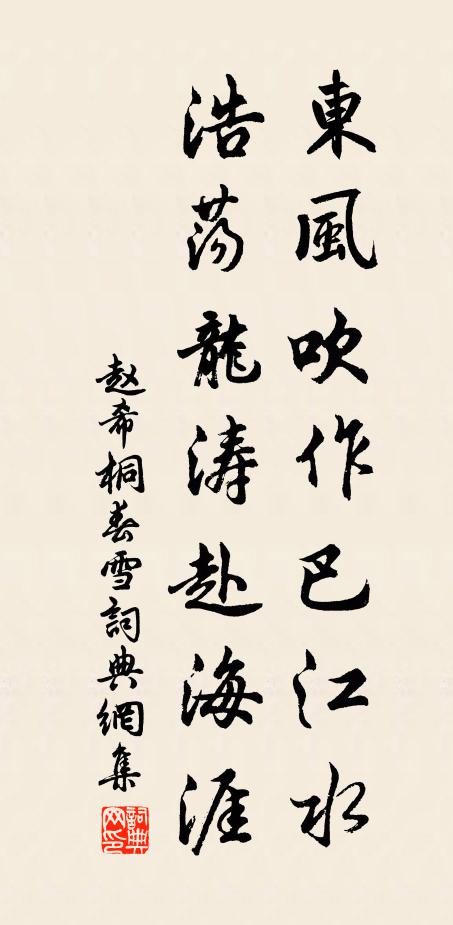 東風吹作巴江水
浩荡龍涛赴海涯
赵希桐春雪詞典網集
詞典
网印